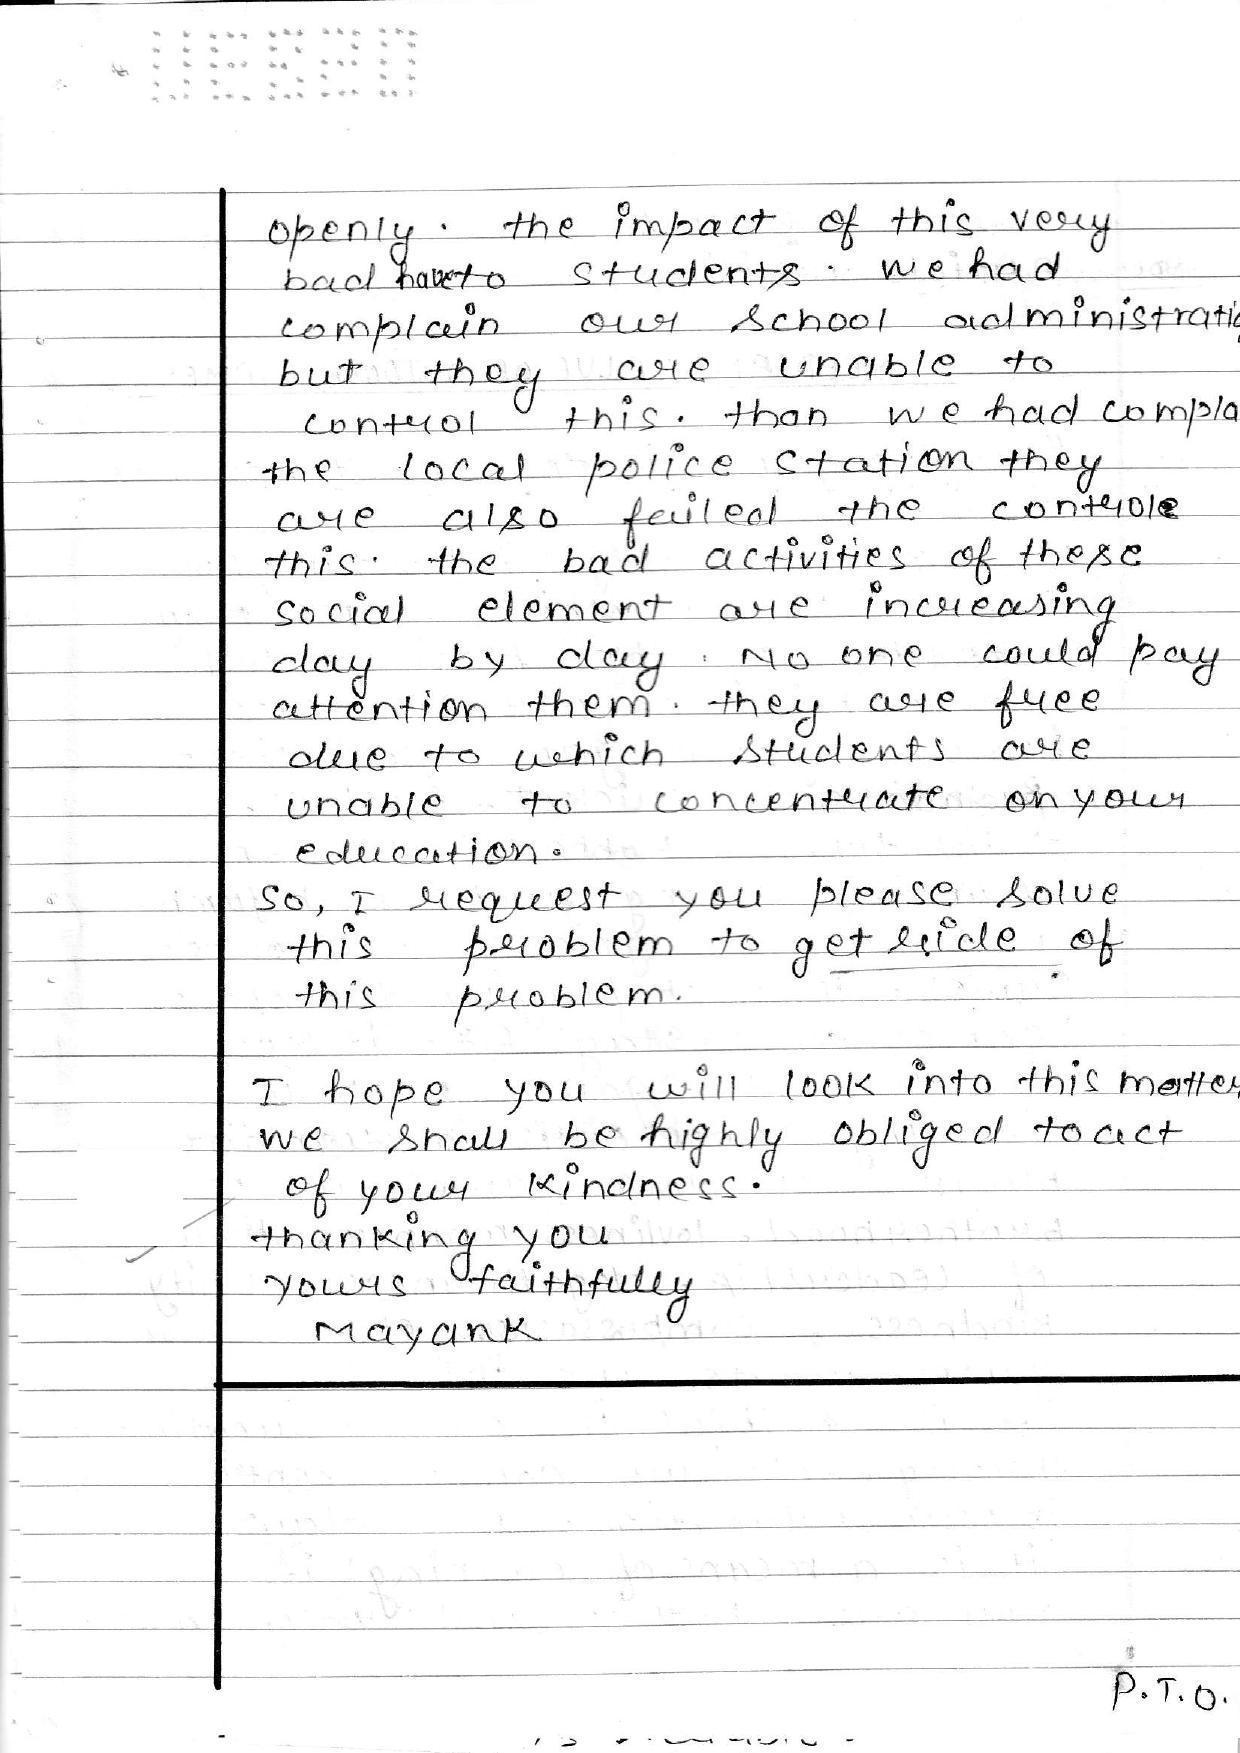 openly. the impact of this very
bad have to students. we had
complain our school administratio
but they are unable to
control this. than we had compla
the local police station they
are also failed the controle
this. the bad activities of these
social element are increasing
day by day. No one could pay
attention them. they are free
due to which students are
unable to concentrate on your
education.
So, I request you please solve
this problem to get ride of
this problem.
I hope you will look into this matter
we shall be highly obliged to act
of your kindness.
thanking you
yours faithfully
Mayank
P.T.O.